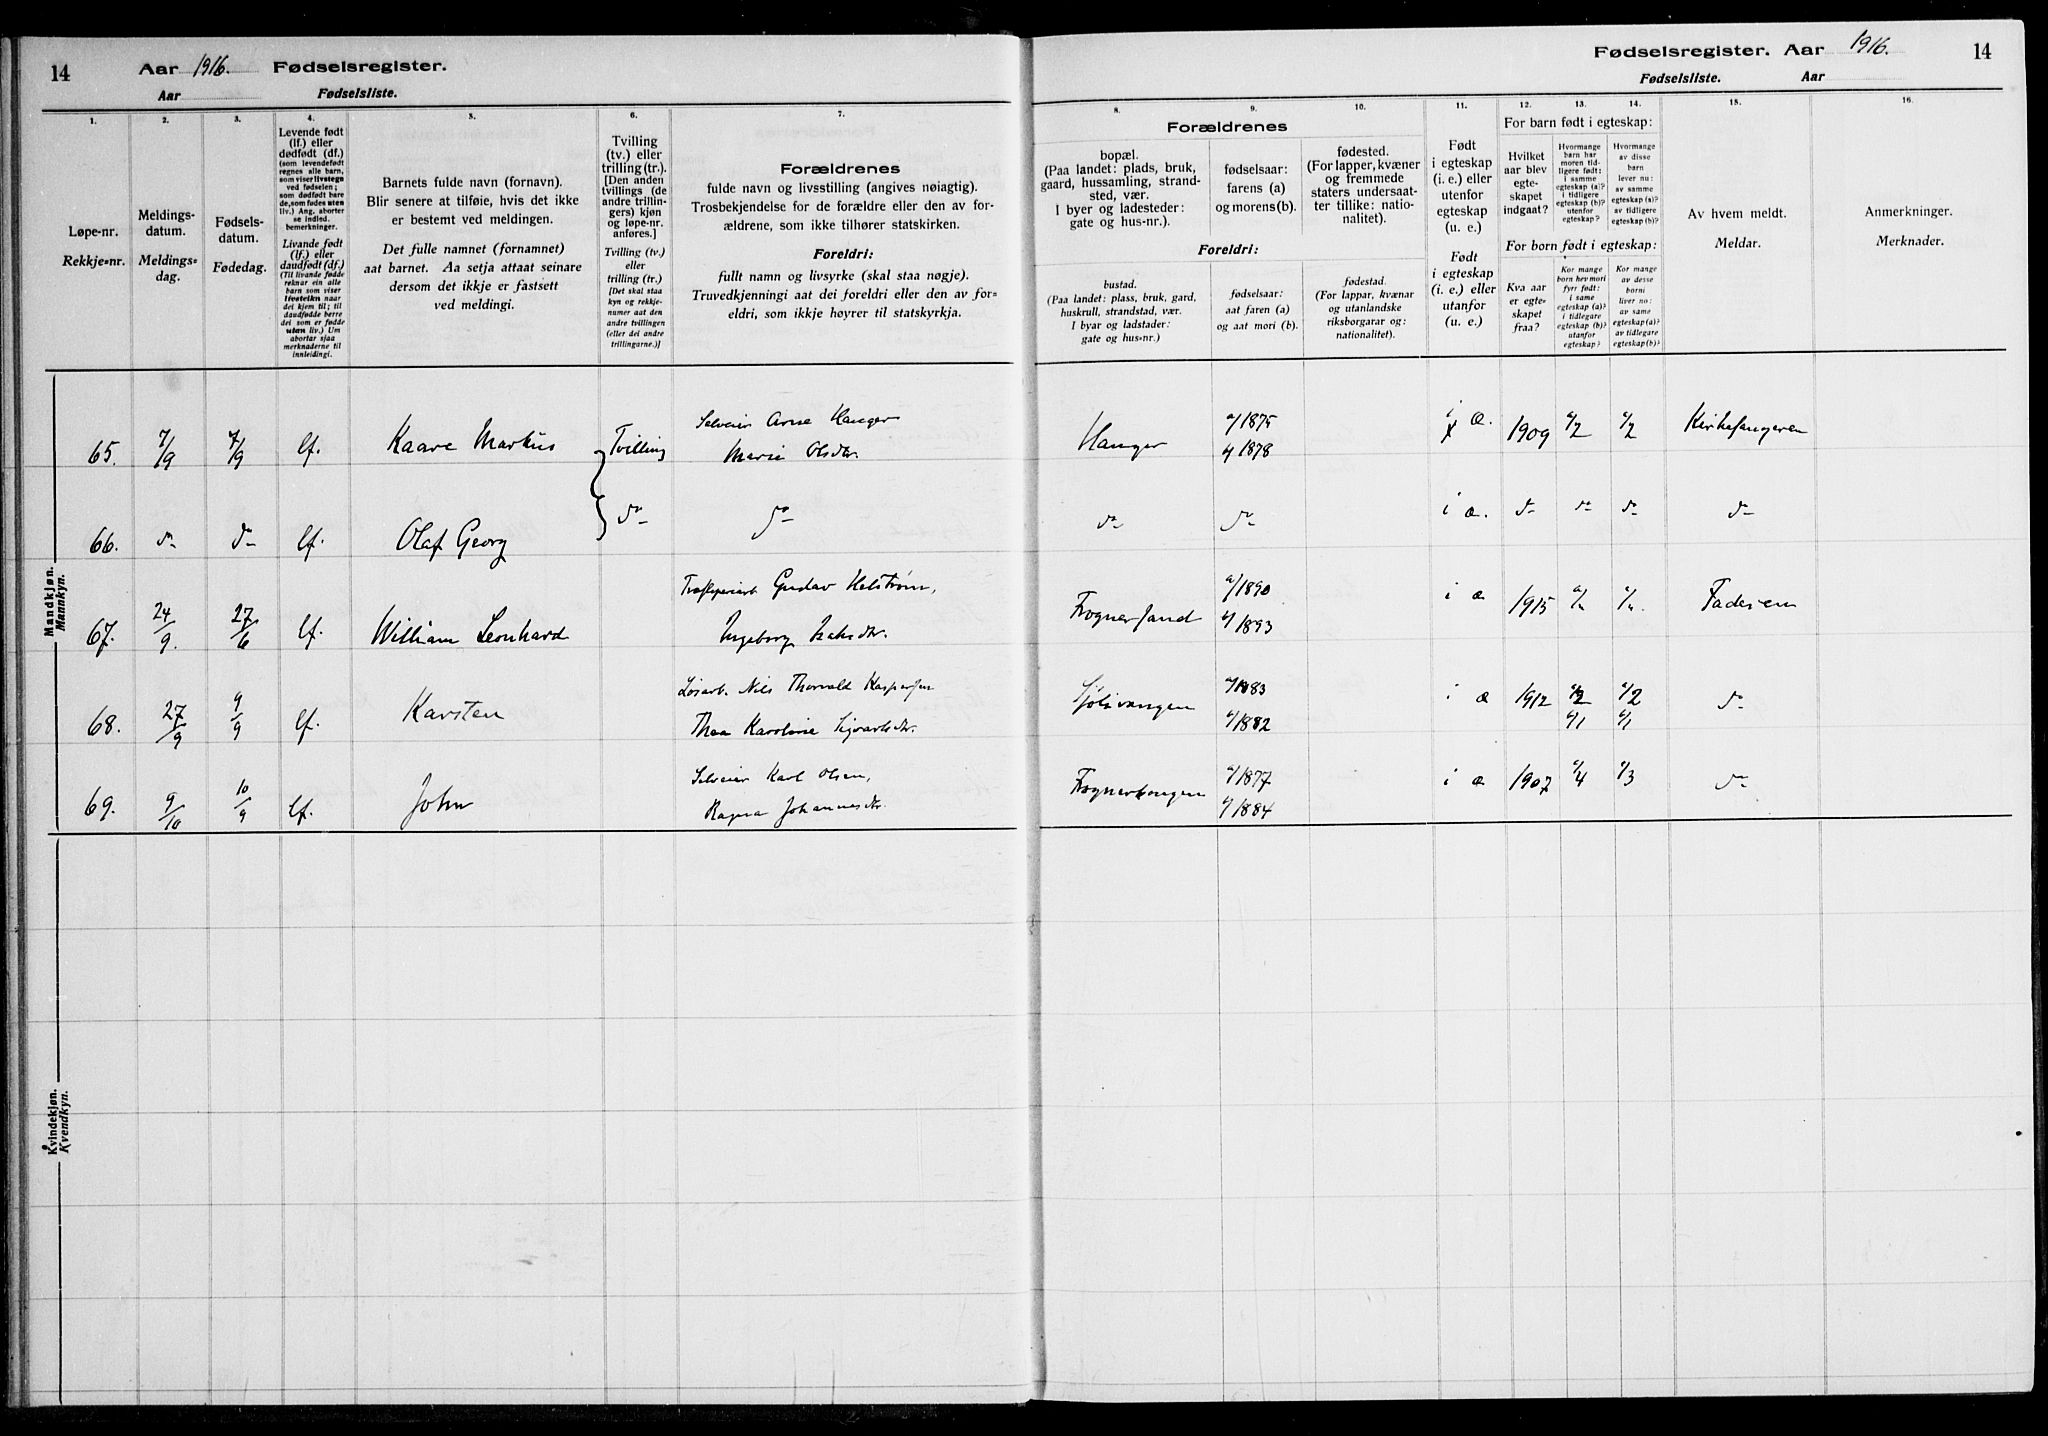 14 Aar 1916. Fødselsregister.
Aar Fødselsliste.
Fødselsregister. Aar 1916. 14
Fødselsliste. Aar
1. 2. 3. 4. 5. 6. 7.
Løpe-nr.
Rekkje=nr.
Meldings-
datum.
Meldings=
dag.
Fødsels-
datum.
Fødedag.
Levende født
(lf.) eller
dødfødt (df.)
(som levendefødt
regnes alle barn,
som viser livstegn
ved fødselen;
som dødfødt bare
de, som fødes uten
liv.) Ang. aborter
se indled.
bemerkninger.
Livande født
(lf.) eller
daudfødt (df.)
(Til livande fødde
reknar ein alle
barn som viser
livsteikn naar
dei kjem til; til
daudfødde berre
dei som er fødde
uten liv.) Um
abortar sjaa
merknaderne til
innleidingi.
Barnets fulde navn (fornavn).
Blir senere at tilføie, hvis det ikke
er bestemt ved meldingen.
Det fulle namnet (fornamnet)
aat barnet. Aa setja attaat seinare
dersom det ikkje er fastsett
ved meldingi.
Tvilling
(tv.) eller
trilling (tr.).
[Den anden
tvillings (de
andre trillin-
gers) kjøn
og løpe-nr.
anføres.]
Tvilling (tv.)
eller
trilling (tr.)
[Det skal staa
kyn og rekkje-
numer aat den
andre tvillingen
(eller dei andre
trillingarne.)]
Forældrenes
fulde navn og livsstilling (angives nøiagtig).
Trosbekjendelse for de forældre eller den av for-
ældrene, som ikke tilhører statskirken.
Foreldri:
fullt namn og livsyrke (skal staa nøgje).
Truvedkjenningi aat dei foreldri eller den av for=
eldri, som ikkje høyrer til statskyrkja.
8. 9. 10. 11. 12. 13. 14. 15. 16.
Forældrenes
bopæl.
(Paa landet: plads, bruk,
gaard, hussamling, strand-
sted, vær.
I byer og ladesteder:
gate og hus-nr.).
fødselsaar:
farens (a)
og morens (b).
fødested.
(For lapper, kvæner
og fremmede
staters undersaat-
ter tillike: natio-
nalitet).
Foreldri:
bustad.
(Paa landet: plass, bruk, gard,
huskrull, strandstad, vær.
I byar og ladstader:
gate og hus=nr.)
fødselsaar:
aat faren (a)
og aat mori (b).
fødestad.
(For lappar, kvænar
og utanlandske
riksborgarar og:
nationalitet).
Født
i egteskap
(i. e.) eller
utenfor
egteskap
(u. e.)
Født
i egteskap
(i. e.) eller
utanfor
(u. e.)
For barn født i egteskap:
Hvilket
aar blev
egte-
skapet
indgaat?
Hvormange
barn har
moren tid-
ligere født:
i samme
egteskap (a)?
i tidligere
egteskap (b)?
utenfor
egteskap?
Hvormange
av disse
barn
lever nu:
av samme
egteskap (a)?
av tidligere
egteskap (b)?
For born født i egteskap:
Kva aar
er egte-
skapet
fraa?
Kor mange
born hev mori
fyrr født:
i same
egteskap (a)?
i tidlegare
egteskap (b)?
utanfor
egteskap?
Kor mange
av desse
borni
liver no:
av same
egteskap (a)?
av tidlegare
egteskap (b)?
Av hvem meldt.
Meldar.
Anmerkninger.
Merknader.
Mandkjøn.
Mannkyn.
65. 7/9 7/9 lf. Kaare Markus Tvilling Selveier Arne Hanger
Marie Olsdtr.
Hanger a/1875 b/1878 i æ. 1909 a/2 a/2 Kirkesangeren
66. do do lf. Olaf Georg do do do do i æ. do do do do
67. 24/9. 27/6 lf. William Leonhard Gustav Helstrøm,
Ingeborg
Frognersand a/1890 b/1893 i æ 1915 Faderen
68. 27/9 9/9 lf. Karsten Løsarb. Nils Thorvald Kaspersen
Thea Karoline Sigvartsdtr.
a/1883 b/1882 i æ 1912 a/2 b/1 a/2 b/1 do
69. 9/10 10/9 lf. John Selveier Karl Olsen,
Ragna Johannesdtr.
Frognerhougen a/1877 b/1884 i æ 1907 a/4 a/3 do
Kvindekjøn.
Kvendkyn.